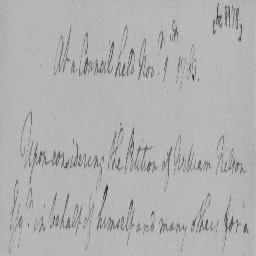 At a Council held Nov.r 1st 1783.
Upon considering the Petition of William Nelson
Esq.r in behalf of himself and many others for a